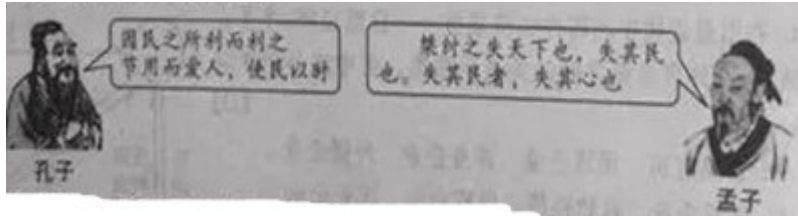 因民之所利而利之
节用而爱人，使民以时
桀纣之失天下也，失其民
也。失其民者，失其心也
孔子
孟子